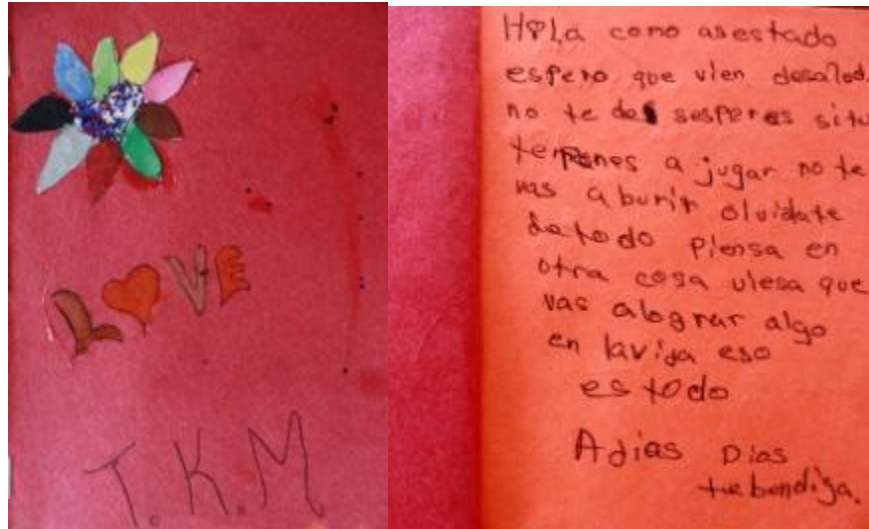 LOVE
T.K.M
Hola como as estado
espero que vien desalod.
no te de sesperes situ
te pones a jugar no te
vas a burir olvidate
de todo piensa en
otra cosa ulesa que
vas alograr algo
en lavida eso
es todo
Adias Dias
te bendiga.